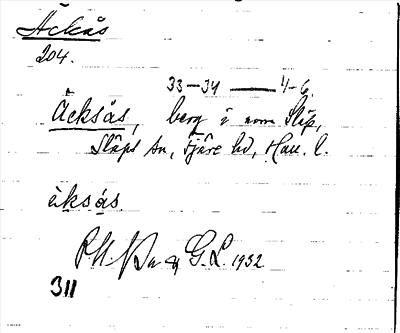 Äckås
204.
33-34 — 4-6.
Äcksås, berg i nom Släp,
Släps sn, Fjäre hd, Hall. l.
èksás
& G.L. 1932
311